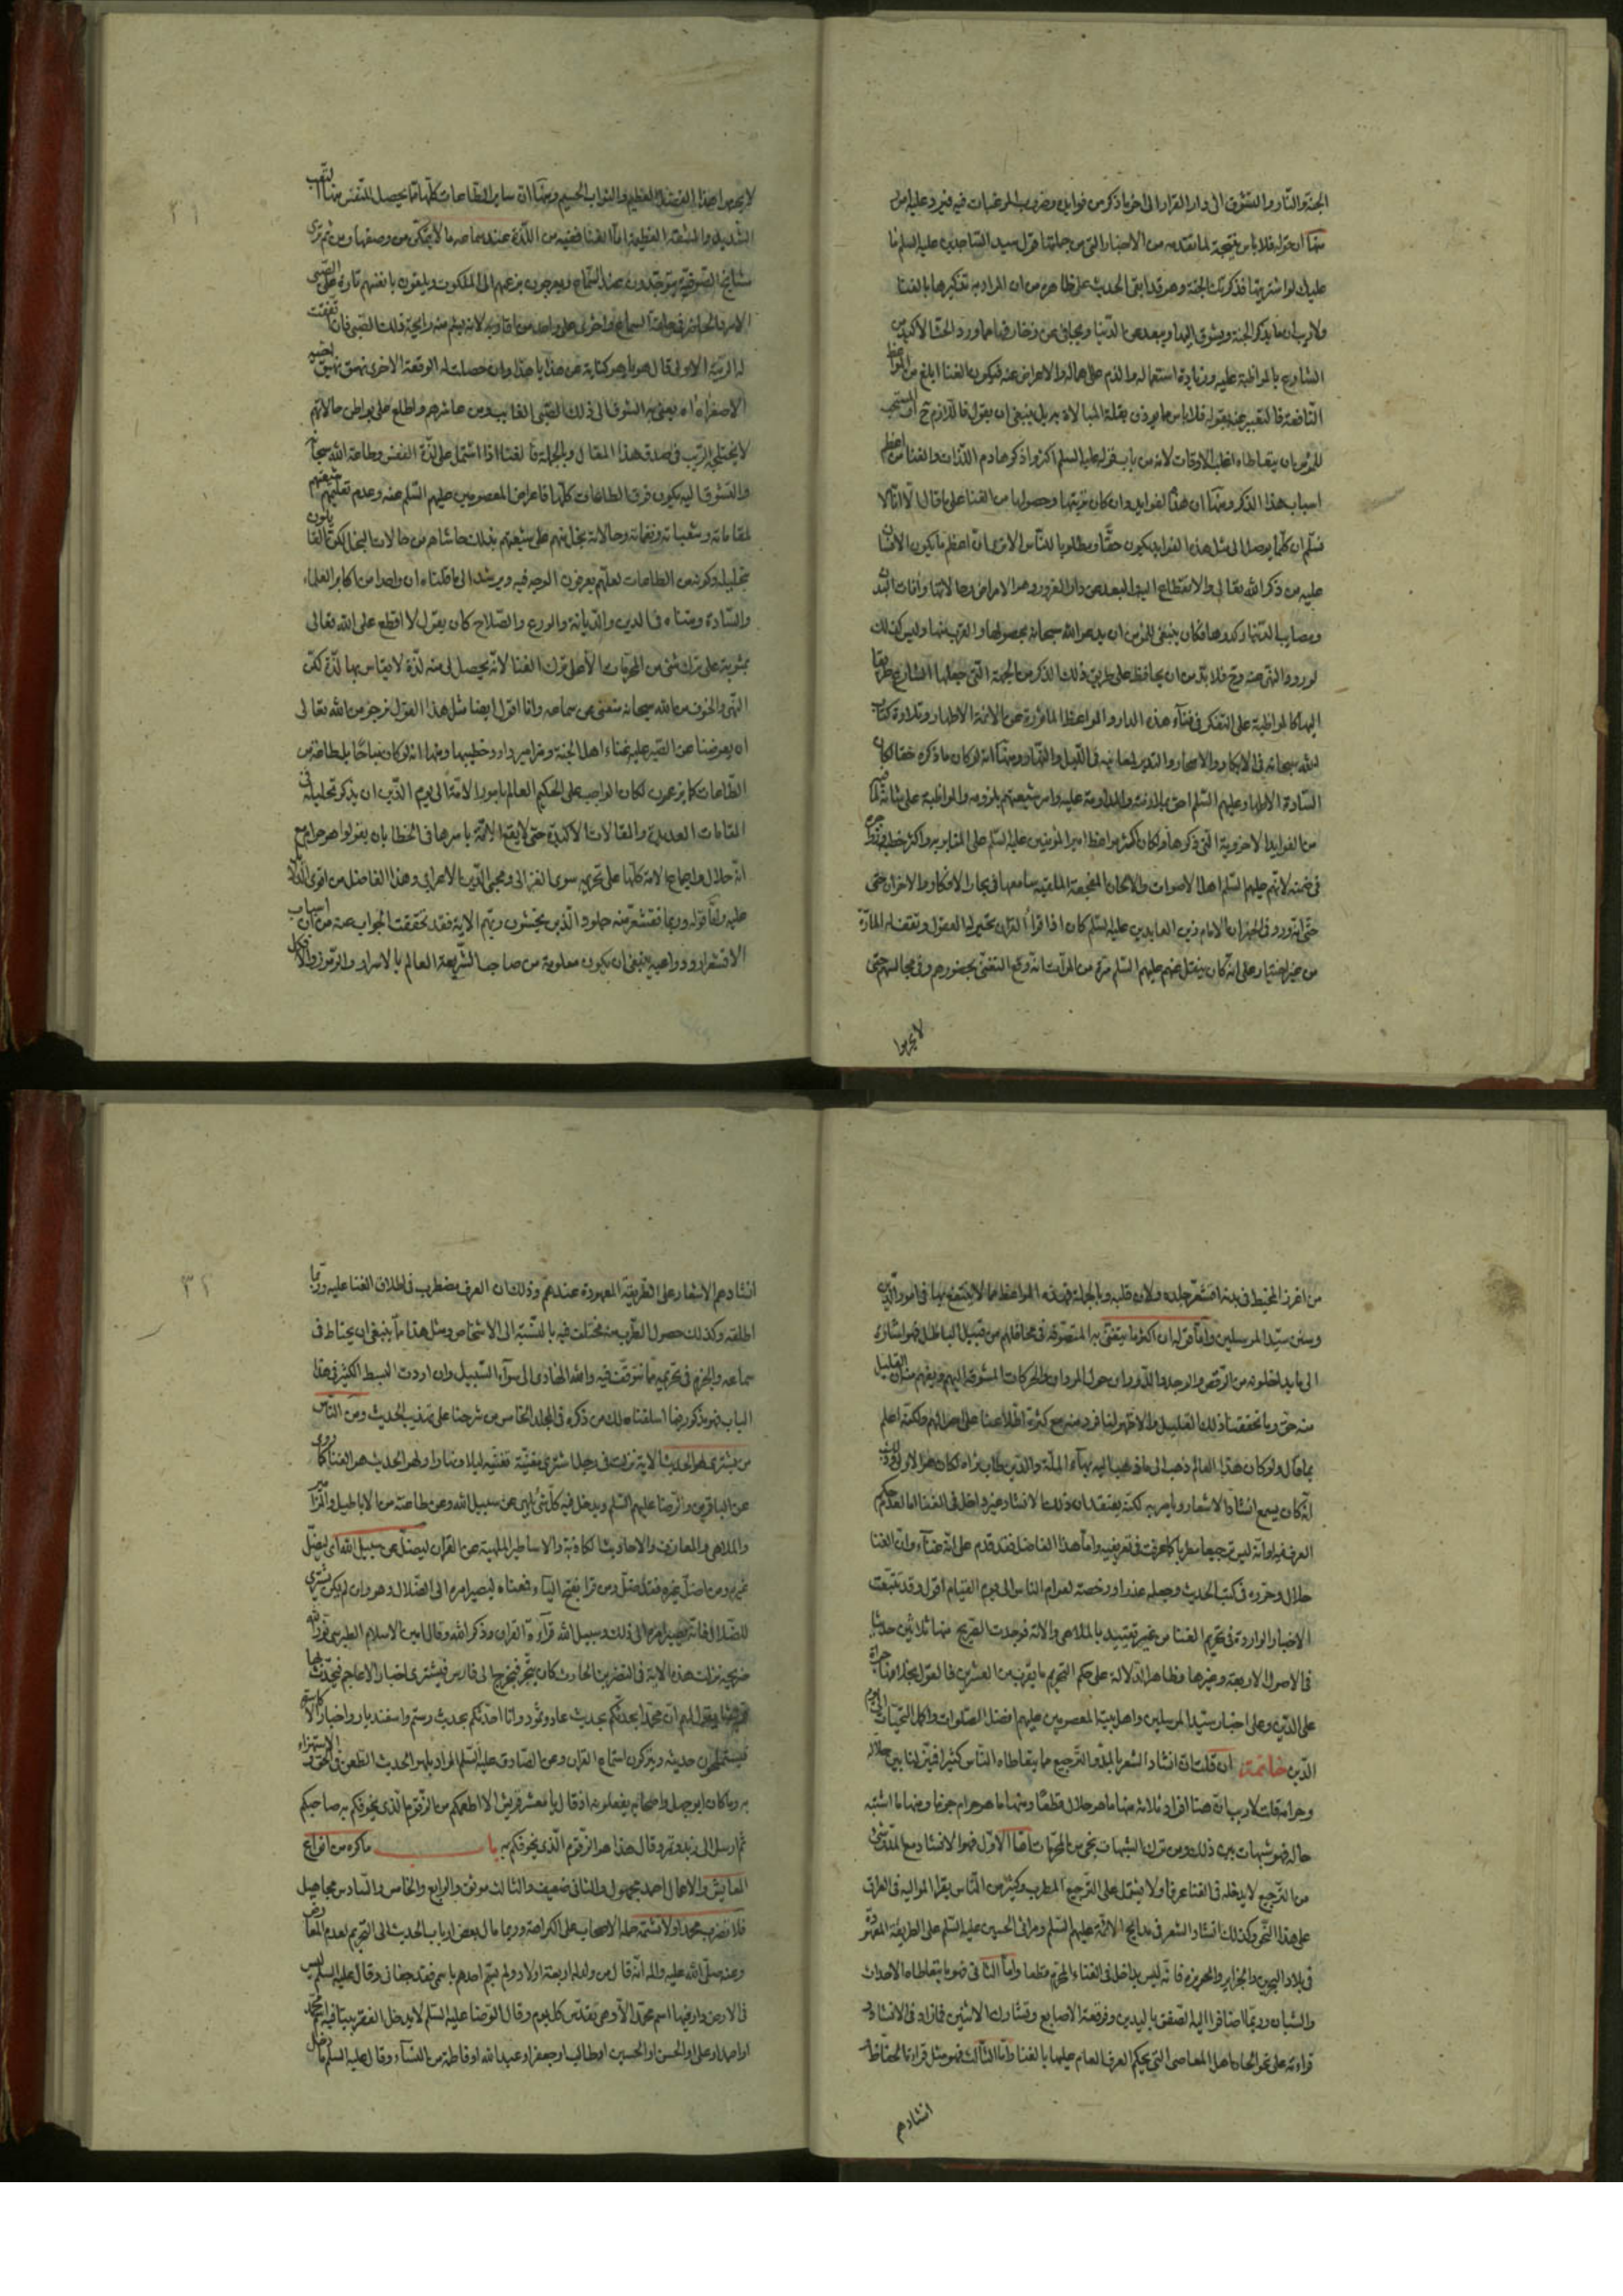 الجنة والنار والتشوق الى دار القرار الى اخر ما ذكر من فوايد وضروب المرغبات فيه فيرد عليه امور
منها ان قوله فلا باس نتيجة لما تقدمه من الاخبار التي من جملتها قول سيد الساجدين عليه السلم ما
عليك لو اشتريتها فذكرتك الجنة وهو قد ابقى الحديث على ظاهره من ان المراد به تذكيرها بالغنا
ولا ريب ان ما يذكر الجنة ويشوق اليها ويبعد عن الدنيا ويجافي عن زخارفها مما ورد الحث الاكيد من
الشارع بالمواظبة عليه وزيادة استعماله والذم على اهماله والاعراض عنه فيكون الغنا ابلغ من المواعظ
النافعة فالتعبير عنه بقوله فلا باس مما يوذن بقلة المبالاة به بل ينبغي ان يقول فاللازم ح او المستحب
للمؤمن ان يتعاطاه اغلب الاوقات لانه من باب قوله عليه السلم اكثروا ذكر هادم اللذات والغنا من اعظم
اسباب هذا الذكر ومنها ان هذه الفوايد وان كان ترتبها وحصولها من الغنا على ما قال الا انا لا
نسلم ان كلما يوصل الى مثل هذه الفوايد يكون حقا ومطلوبا للناس الا ترى ان اعظم ما يكون الانسان
عليه من ذكر الله تعالى والانقطاع اليه والبعد عن دار الغرور وهو الامراض وحالاتها وآفات البدن
ومصايب الدنيا وكدوها فكان ينبغي للمؤمن ان يدعو الله سبحانه بحصولها والقرب منها وليس كذلك
لورود النهي عنه وح فلا بد من ان يحافظ على طريق ذلك الذكر من الجهة التي جعلها الشارع طريقا
اليها كالمواظبة على التفكر في فناء هذه الدار والمواعظ الماثورة عن الائمة الاطهار وتلاوة كتاب
الله سبحانه في الابكار والاسحار والتدبر لمعانيه في الليل والنهار ومنها انه لو كان ما ذكره حقا لكان
السادة الاطهار عليهم السلم احق بملازمته والمداومة عليه وامر شيعتهم بلزومه والمواظبة على شانه لما فيه
من الفوايد الاخروية التي ذكرها ولكان اكثر مواعظ امير المؤمنين عليه السلم على المنابر به واكثر خطبه
في ضمنه لانهم عليهم السلم اهل الاصوات والالحان المفجعة الملقيه سامعها في بحار الافكار والاحزان حتى
حتى انه ورد في الخبر ان الامام زين العابدين عليه السلم كان اذا قرأ القران تحير له العقول وتقف له المارة
من غير اختيار على انه كان ينقل عنهم عليهم السلم مرة من المرات انه وقع التغني بحضورهم وفي مجالسهم حتى
لا يحرموا
٣١
لا يحرموا هذا الفضل العظيم والثواب الجسيم ومنها ان ساير الطاعات كلها مما يحصل للنفس منها التعب
الشديد والمشقة العظيمة اما الغنا ففيه من اللذة عند سماعه ما لا يتمكن من وصفها ومن ثم ترى
مشايخ الصوفية يتوجدون عند السماع ويعرجون بزعمهم الى الملكوت ويلقون بانفسهم تارة على الصبي
الامرد الحاضر في حلقة السماع واخرى على واحد من اقاربه لانه يشم منه رايحة ذلك الصبي فان اتفقت
له الرتبة الاولى قال هو يا هو كناية عن هذا يا هذا وان حصلت له الوقعة الاخرى نهق نهيق الحمير
الاصغر اه اه يعني به الشوق الى ذلك الصبي الغايب ومن عاشرهم واطلع على بواطن حالاتهم
لا يختلجه الريب في صدق هذا المقال وبالجملة فالغنا اذا اشتمل على لذة النفس وطاعة الله سبحانه
والتشوق اليه يكون فوق الطاعات كلها فاعراض المعصومين عليهم السلم عنه وعدم تعليمهم شيعتهم
لمقاماته وشعباته ونغماته وحالاته بخل منهم على شيعتهم بذلك حاشاهم من حالات البخل لكن القايلون
بتحليله وكونه من الطاعات لعلهم يعرفون الوجه فيه ويرشد الى ما قلناه ان واحدا من اكابر العلماء
والسادة ومن اه في الدين والديانة والورع والصلاح كان يقول لا اقطع على الله تعالى
بمثوبة على ترك شئ من المحرمات الا على ترك الغنا لانه يحصل لي منه لذة لا يقاس بها لذة لكن
النهي والخوف من الله سبحانه منعني من سماعه وانا اقول ايضا مثل هذا القول نرجو من الله تعالى
ان يعوضنا عن الصبر عليه غناء اهل الجنة ومزامير داود خطيبها ومنها انه لو كان مباحا بل طاعة من
الطاعات كما يزعمون لكان الواجب على الحكيم العالم بامور الامة الى يوم الدين ان يذكر تحليله في
المقامات العديدة والمقالات الاكيدة حتى لا يقع الامة باسرها في الخطا بان يقولوا هو حرام مع
انه حلال واجماع الامة كلها على تحريمه سوى الغزالي ومحيي الدين الاعرابي وهذا الفاضل من اقوى الدلائل
عليه واما قوله وربما تقشعر منه جلود الذين يخشون ربهم الاية فقد تحققت الجواب عنه من ان اسباب
الاقشعرار ودواعيه ينبغي ان يكون معلومة من صاحب الشريعة العالم بالاسرار والرموز والا فكل
من اخرق المخيط في بدنه اقشعر جلده ولان قلبه وبالجملة فهذه المواعظ مما لا ينتفع بها في امور الدين
وسنن سيد المرسلين واما قوله ان اكثر ما يتغنى به المتصوفة في محافلهم من قبيل الباطل فهو اشارة
الى ما يدخلونه من الرقص والوجد والدوران حول المردان والحركات المشوقة اليهم ويفهم منه ان القليل
منه حق وما تحققنا ذلك القليل ولا ظهر لنا فرد منه مع كثرة اطلاعنا على احوالهم ولكنه اعلم
بما قال ولو كان هذا العالم ذهب الى ما ذهب اليه بهاء الملة والدين طاب ثراه لكان هو الاولى
انه كان يسمع انشاد الاشعار ويامر به لكنه يعتقد ان ذلك الانشاد غير داخل في الغنا اما لعدم حكم
العرف فيه او انه ليس ترجيعا مطربا كما عرفت في تعريفه واما هذا الفاضل فقد قدم على انه غناء وان الغنا
حلال وحرره في كتب الحديث وجعله عذرا ورخصة لعوام الناس الى يوم القيام اقول وقد تتبعت
الاخبار الواردة في تحريم الغنا من غير تقييد بالملاهي والالة فوجدت الصريح منها ثلاثين حديثا
في الاصول الاربعة وغيرها وظاهر الدلالة على حكم التحريم ما يقرب من العشرين فالقول بخلافها جراة
على الدين وعلى اخبار سيد المرسلين واهل بيته المعصومين عليهم افضل الصلوات واكمل التحيات الى يوم
الدين خاتمة ان قلت ان انشاد الشعر بالمد والترجيع مما يتعاطاه الناس كثيرا فبين لنا بين حلاله
وحرامه قلت لا ريب ان هنا افراد ثلاثة منها ما هو حلال قطعا ومنها ما هو حرام جزما ومنها ما اشتبه
حاله فهو شبهات بين ذلك ومن ترك الشبهات نجى من المحرمات اما الاول فهو الانشاد مع المد وشئ
من الترجيع لا يدخله في الغنا عرفا ولا يشتمل على الترجيع المطرب وكثير من الناس يقرا المواليه في العراق
على هذا النحو وكذلك انشاد الشعر في مدايح الائمة عليهم السلم ومراثي الحسين عليه السلم على الطريقة المعهودة
في بلاد البحرين والجزاير والحويزه فانه ليس بداخل في الغناء المحرم قطعا واما الثاني فهو ما يتعاطاه الاحداث
والشبان وربما اضافوا اليه التصفق باليدين وفرقعة الاصابع وتشاوك الاثنين فما زاد في الانشاد
قراءته على نحو الحان اهل المعاصي التي يحكم العرف العام عليها بالغنا واما الثالث فهو مثل قراءة الحفاظ
انشادهم
٣٢
انشادهم الاشعار على الطريقة المعهودة عندهم وذلك ان العرف مضطرب في اطلاق الغنا عليه وربما
اطلقه وكذلك حصول الطرب منه مختلف فيه بالنسبة الى الاشخاص ومثل هذا مما ينبغي ان يحتاط في
سماعه والجزم في تحريمه مما نتوقف فيه والله الهادي الى سواء السبيل وان اردت البسط الكثير في هذا
الباب فهو مذكور فيما اسلفناه لك من ذكره في المجلد الخامس من شرحنا على تهذيب الحديث ومن الناس
من يشتري لهو الحديث الاية نزلت في رجل اشترى مغنية تغنيه ليلا ونهارا ولهو الحديث هو الغنا كما روى
عن الباقرين والرضا عليهم السلم ويدخل فيه كل شئ يلهي عن سبيل الله وعن طاعته من الاباطيل والمزامير
والملاهي والمعازف والاحاديث الكاذبة والاساطير الملهية عن القران ليضل عن سبيل الله اي ليضل
غيره ومن اضل غيره فقد ضل ومن قرا بفتح الياء فمعناه ليصير امره الى الضلال وهو وان لم يكن يشتري
للضلال فانه يصير امره الى ذلك وسبيل الله قراءة القران وذكر الله وقال امين الاسلام الطبرسي نور الله
ضريحه نزلت هذه الاية في النضر بن الحارث كان يتجر فيخرج الى فارس فيشتري اخبار الاعاجم فيحدث بها
قريشا ويقول لهم ان محمدا يحدثكم بحديث عاد وثمود وانا احدثكم بحديث رستم واسفنديار واخبار الاكاسرة
فيستملحون حديثه ويتركون استماع القران وعن الصادق عليه السلم المراد بلهو الحديث الطعن في الحق والاستهزاء
به وما كان ابو جهل واصحابه يفعلونه اذ قال يا معشر قريش الا اطعمكم من الزقوم الذي يخوفكم به صاحبكم
ثم ارسل الى زبد وتمر وقال هذا هو الزقوم الذي يخوفكم به باب ما كره من انواع
المعايش والاعمال احمد مجهول والثاني ضعيف والثالث موثق والرابع والخامس والسادس مجاهيل
فلا تضرب محمدا ولا تشتمه حمله الاصحاب على الكراهة وربما مال بعض ارباب الحديث الى التحريم لعدم المعارض
وعنه صلى الله عليه واله انه قال من ولد له اربعة اولاد ولم يسم احدهم باسمي فقد جفاني وقال عليه السلم ليس
في الارض دار فيها اسم محمد الا وهي تقدس كل يوم وقال الرضا عليه السلم لا يدخل الفقر بيتا فيه اسم محمد
او احمد او علي او الحسن او الحسين او طالب او جعفر او عبد الله او فاطمة من النساء وقال عليه السلم ما دخل